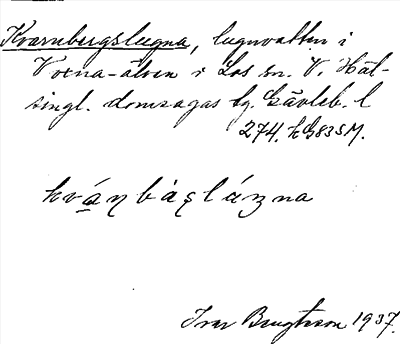 Kvarnbergslugna, lugnvatten i
Voxna-älven i Los sn. V. Häl-
singl. domsagas tg. Gävleb. l
274. h G835 M.
kvánbàslázna
Ivar Bengtsson 1937.